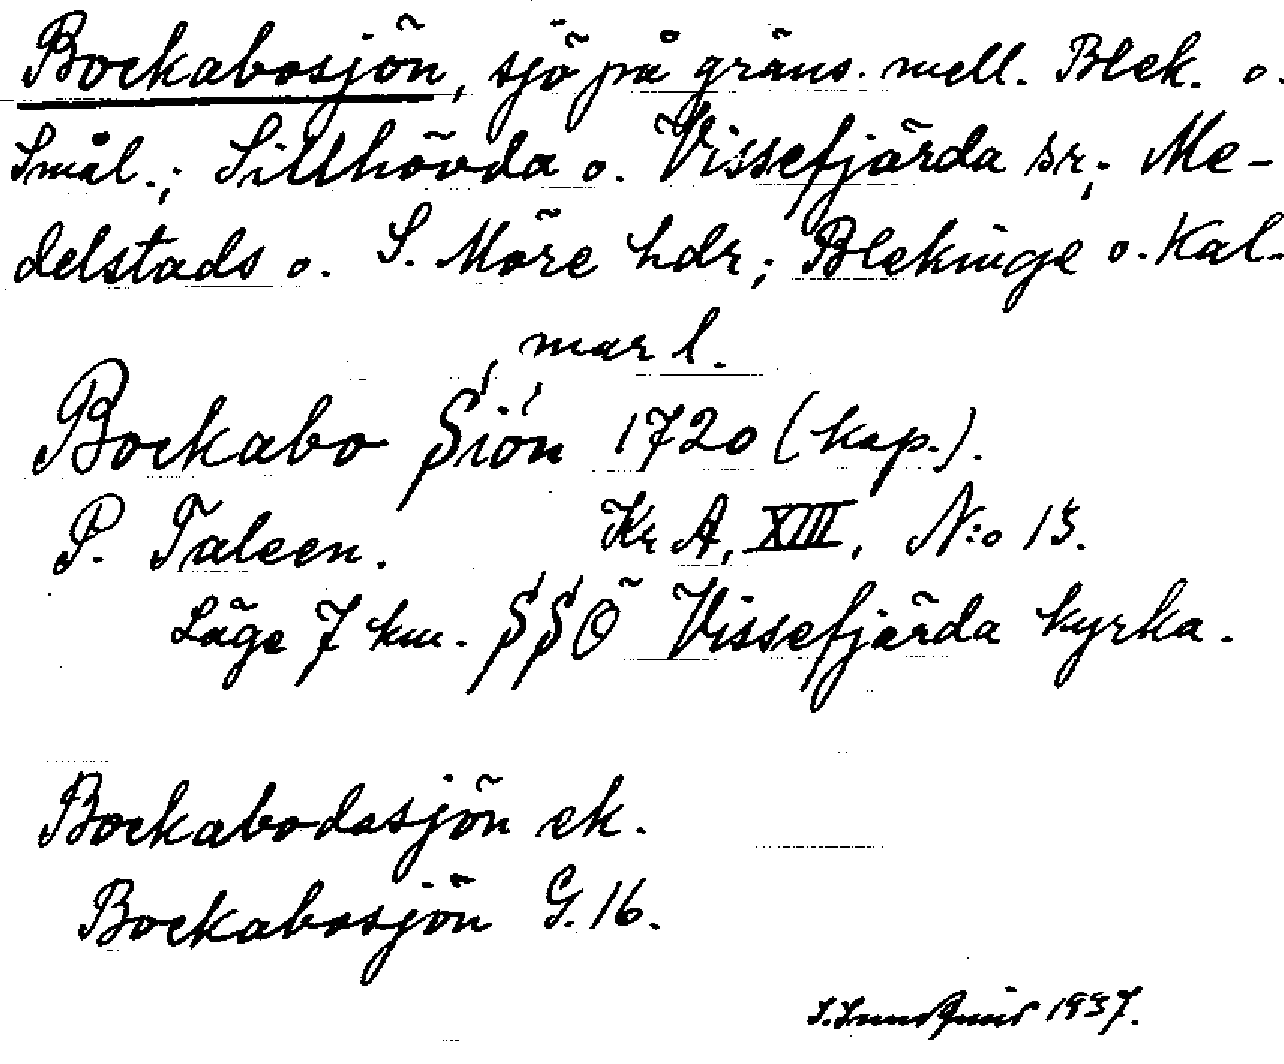 Bockabosjön, sjö på gräns. mell. Blek. o.
Smål.; Sillhövda o. Vissefjärda sr; Me-
delstads o. S. Möre hdr; Blekinge o. Kal-
mar l.
Bockabo Siön 1720 (kop.).
P. Taleen. Kr A, XIII, N:o 15.
Läge 7 km. SSÖ Vissefjärda kyrka.
Bockabodasjön ek.
Bockabosjön G. 16.
1937.